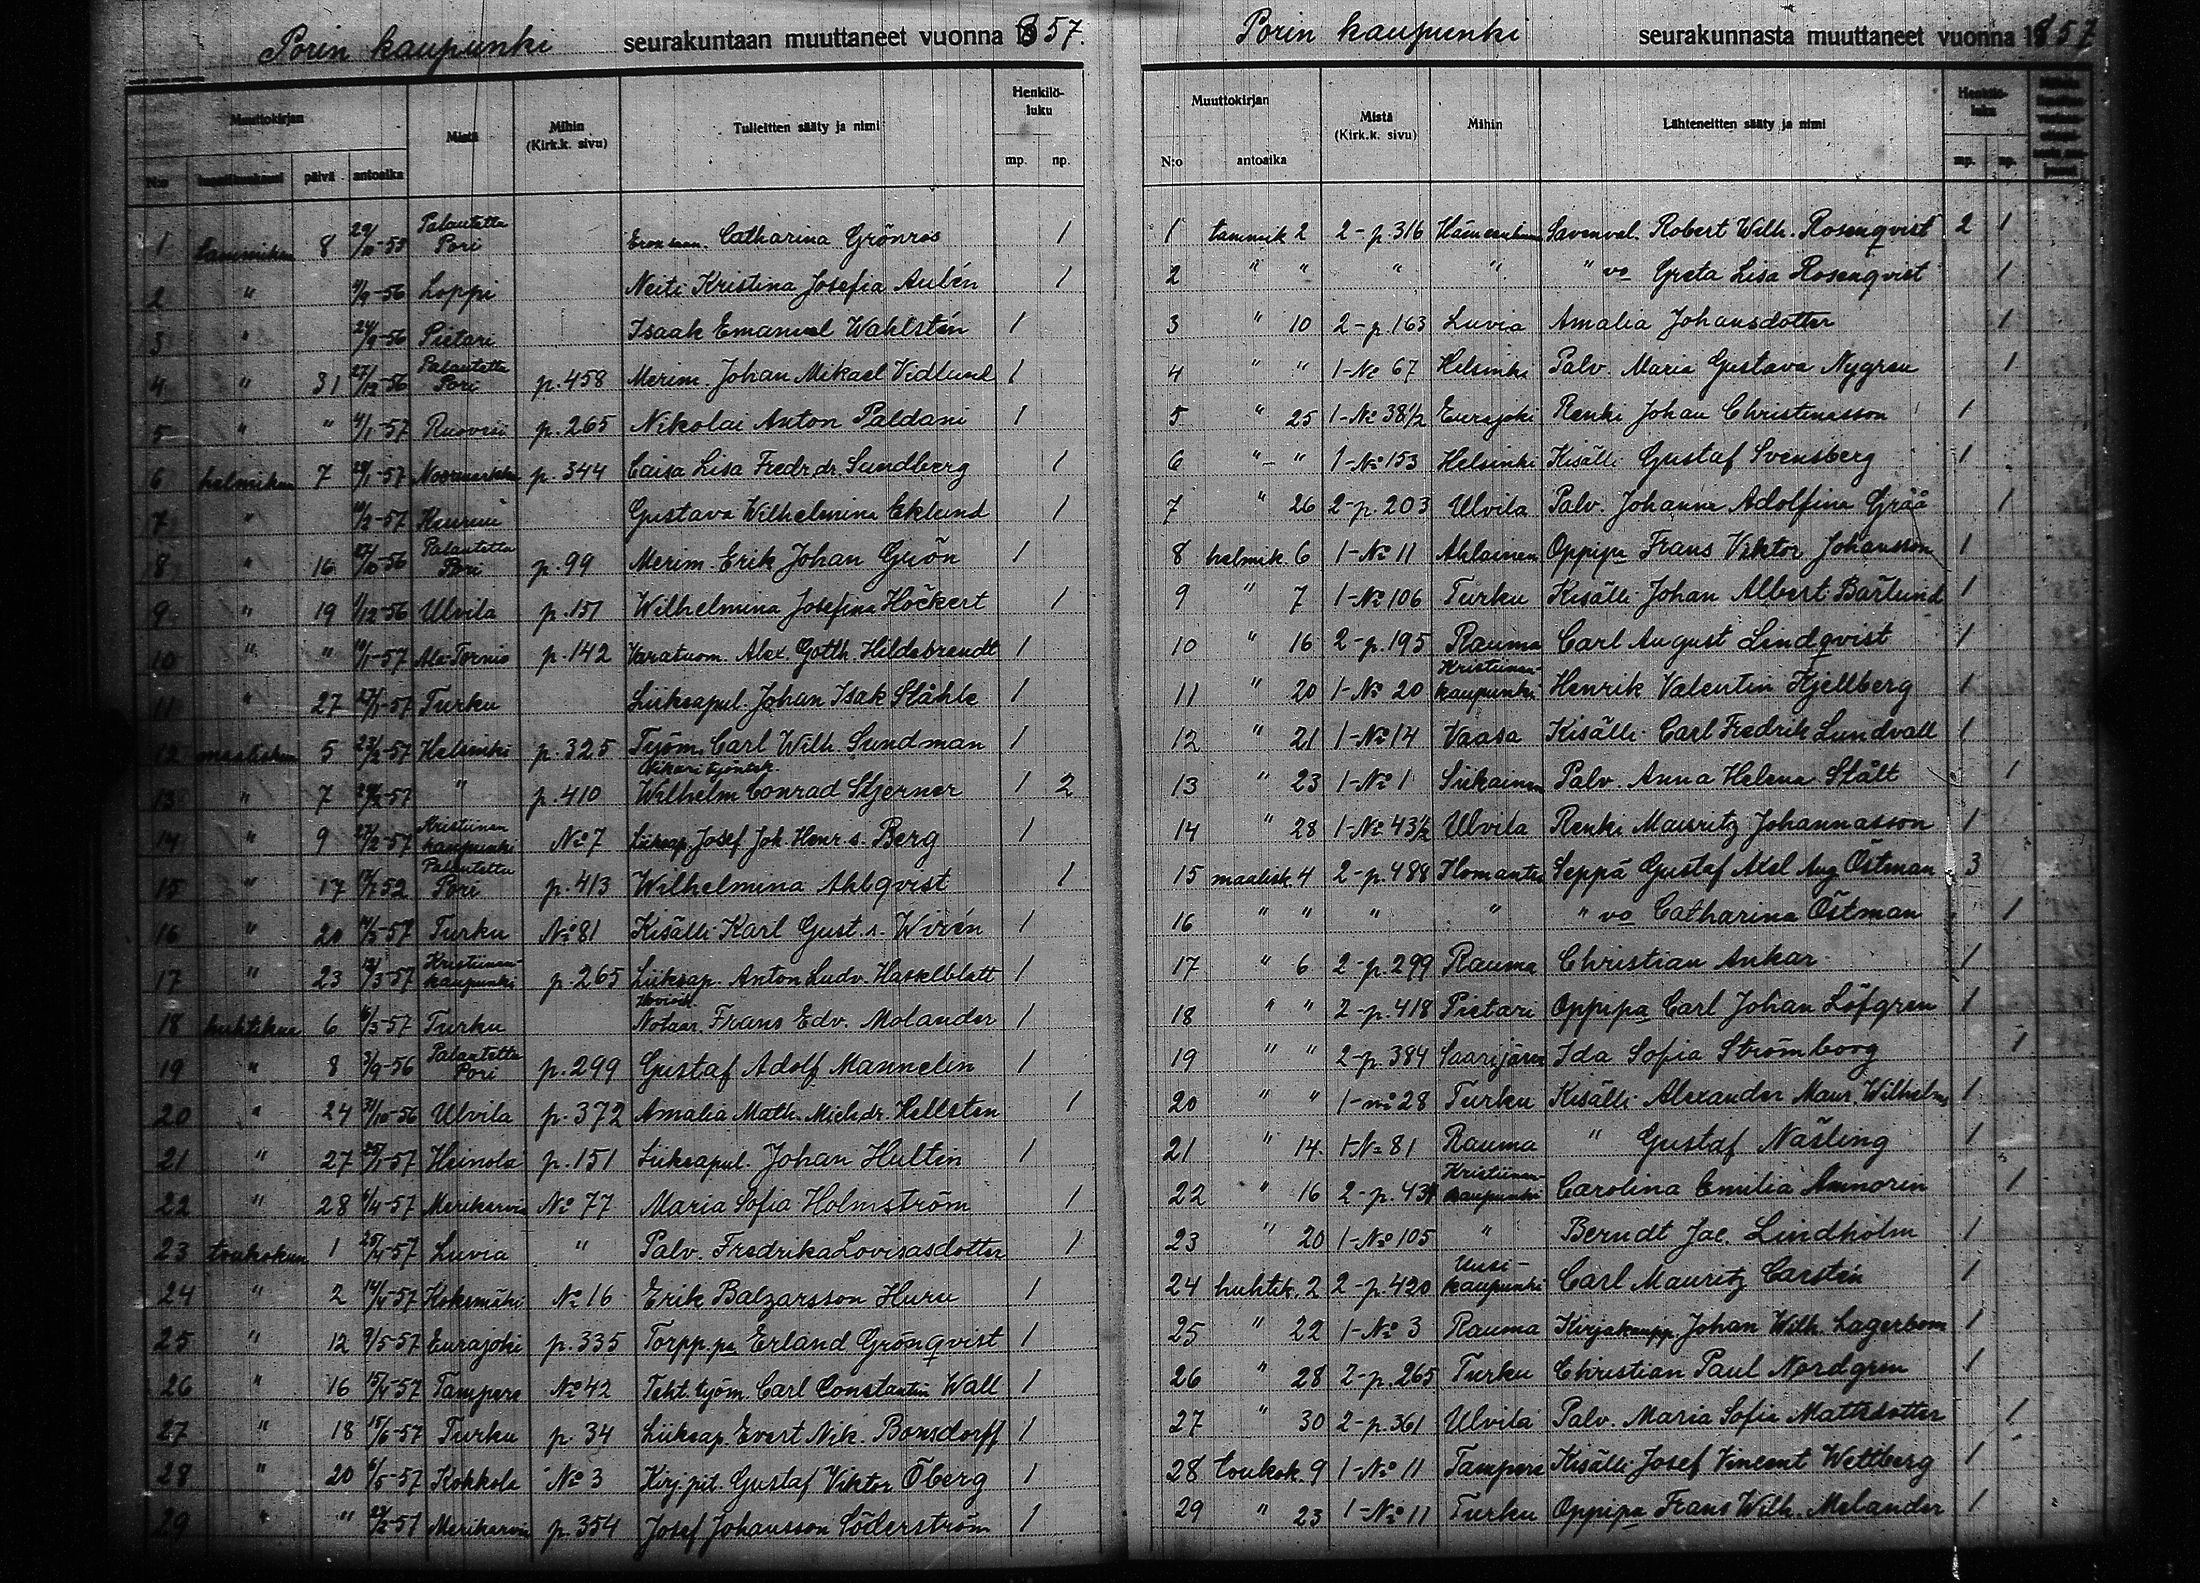 Porin kaupunki seurakuntaan muuttaneet vuonna 1857.
Muuttokirjan Mistä Mihin (Kirk.k. sivu) Tulleitten sääty ja nimi Henkilö-luku
N:o päivä antoaika mp. np.
1 tammikuu 8 -55 Palautettu Pori Catharina Grönros 1
2 " -56 Loppi Neiti Kristina Josefia Aulén 1
3 " 24/9-56 Pietari Isaak Emanuel Wahlstén 1
4 " 31 27/12-56 Palautettu Pori p.458 Merim. Johan Mikael Vidlund 1
5 " " 4/1-57 Ruovesi p.265 Nikolai Anton Paldani 1
6 helmikuu 7 29/1-57 Noormarkku p.344 Caisa Lisa Fredr.dr. Sundberg 1
7 " -57 Keuruu Gustava Wilhelmina Eklund 1
8 " 16 -56 Palautettu Pori p.99 Merim. Erik Johan Guön 1
9 " 19 1/12-56 Ulvila p.151 Wilhelmina Josefina Höckert 1
10 " " 10/1-57 Ala-Tornio p.142 Varatuom. Alex. Gotth. Hildebrandt 1
11 " 27 -57 Turku Liiksapul. Johan Isak Ståhle 1
12 maaliskuu 5 23/2-57 Helsinki p.325 Työm. Carl Wilh. Sundman 1
13 " 7 -57 " p.410 Wilhelm Conrad Stjerner 1 2
14 " 9 27/2-57 Kristiinankaupunki No 7 Liiksap. Josef Joh. Henr. s. Berg 1
15 " 17 52 Palautettu Pori p.413 Wilhelmina Ahlqvist 1
16 " 20 -57 Turku No 81 Kisälli Karl Gust. s. Wirén 1
17 " 23 -57 Kristiinan-kaupunki p.265 Liiksap. Anton Ludv. Hasselblatt 1
18 huhtikuu 6 -57 Turku Notaar. Frans Edv. Molander 1
19 " 8 3/9-56 Palautettu Pori p.299 Gustaf Adolf Mannelin 1
20 " 24 31/10-56 Ulvila p.372 Amalia Math. Mich.dr. Hellsten 1
21 " 27 -57 Heinola p.151 Liiksapul. Johan Hultin 1
22 " 28 -57 Merikarvia No 77 Maria Sofia Holmström 1
23 toukokuu 1 25/4-57 Luvia " Palv. Fredrika Lovisasdotter 1
24 " 2 14/4-57 Kokemäki No 16 Erik Balzarsson Huru 1
25 " 12 9/5-57 Eurajoki p.335 Torpp.pa Erland Grönqvist 1
26 " 16 15/4-57 Tampere No 42 Teht.työm. Carl Constantin Wall 1
27 " 18 -57 Turku p.34 Liiksap. Evert Nik. Bonsdorff 1
28 " 20 6/5-57 Kokkola No 3 Kirj.pit. Gustaf Viktor Öberg 1
29 " " -57 Merikarvia p.354 Josef Johansson Söderström 1
Porin kaupunki seurakunnasta muuttaneet vuonna 1857
Muuttokirjan Mistä (Kirk.k. sivu) Mihin Lähteneitten sääty ja nimi Henkilö-luku
N:o antoaika mp. np.
1 tammik 2 2-p.316 Hämeenlinna Savenval. Robert Wilh. Rosenqvist 2 1
2 " " " " " vo Greta Lisa Rosenqvist 1
3 " 10 2-p.163 Luvia Amalia Johansdotter 1
4 " " 1-No 67 Helsinki Palv. Maria Gustava Nygren 1
5 " 25 1-No 38 1/2 Eurajoki Renki Johan Christinasson 1
6 " " 1-No 153 Helsinki Kisälli Gustaf Svensberg 1
7 " 26 2-p.203 Ulvila Palv. Johanna Adolfina Grää 1
8 helmik. 6 1-No 11 Ahlainen Oppipa Frans Viktor Johansson 1
9 " 7 1-No 106 Turku Kisälli Johan Albert Bärlund 1
10 " 16 2-p.195 Rauma Carl August Lindqvist 1
11 " 20 1-No 20 Kristiinan-kaupunki Henrik Valentin Kjellberg 1
12 " 21 1-No 14 Vaasa Kisälli Carl Fredrik Lundvall 1
13 " 23 1-No 1 Siikainen Palv. Anna Helena Stålt 1
14 " 28 1-No 43 1/2 Ulvila Renki Mauritz Johannasson 1
15 maalisk. 4 2-p.488 Ilomantsi Seppä Gustaf Axel Aug Östman 3
16 " " " " " vo Catharina Östman 1
17 " 6 2-p.299 Rauma Christian Ankar 1
18 " " 2-p.418 Pietari Oppipa Carl Johan Löfgren 1
19 " " 2-p.384 Saarijärvi Ida Sofia Strömborg 1
20 " " 1-no 28 Turku Kisälli Alexander Maur. Wilhelms 1
21 " 14. 1-No 81 Rauma " Gustaf Näsling 1
22 " 16 2-p.434 Kristiinan-kaupunki Carolina Emilia Amnorin 1
23 " 20 1-No 105 " Berndt Jac. Lindholm 1
24 huhtik. 2 2-p.420 Uusi-kaupunki Carl Mauritz Carstén 1
25 " 22 1-No 3 Rauma Kirjakaupp. Johan Wilh. Lagerbom 1
26 " 28 2-p.265 Turku Christian Paul Nordgren 1
27 " 30 2-p.361 Ulvila Palv. Maria Sofia Mattsdotter 1
28 toukok. 9 1-No 11 Tampere Kisälli Josef Vincent Wettberg 1
29 " 23 1-No 11 Turku Oppipa Frans Wilh. Melander 1